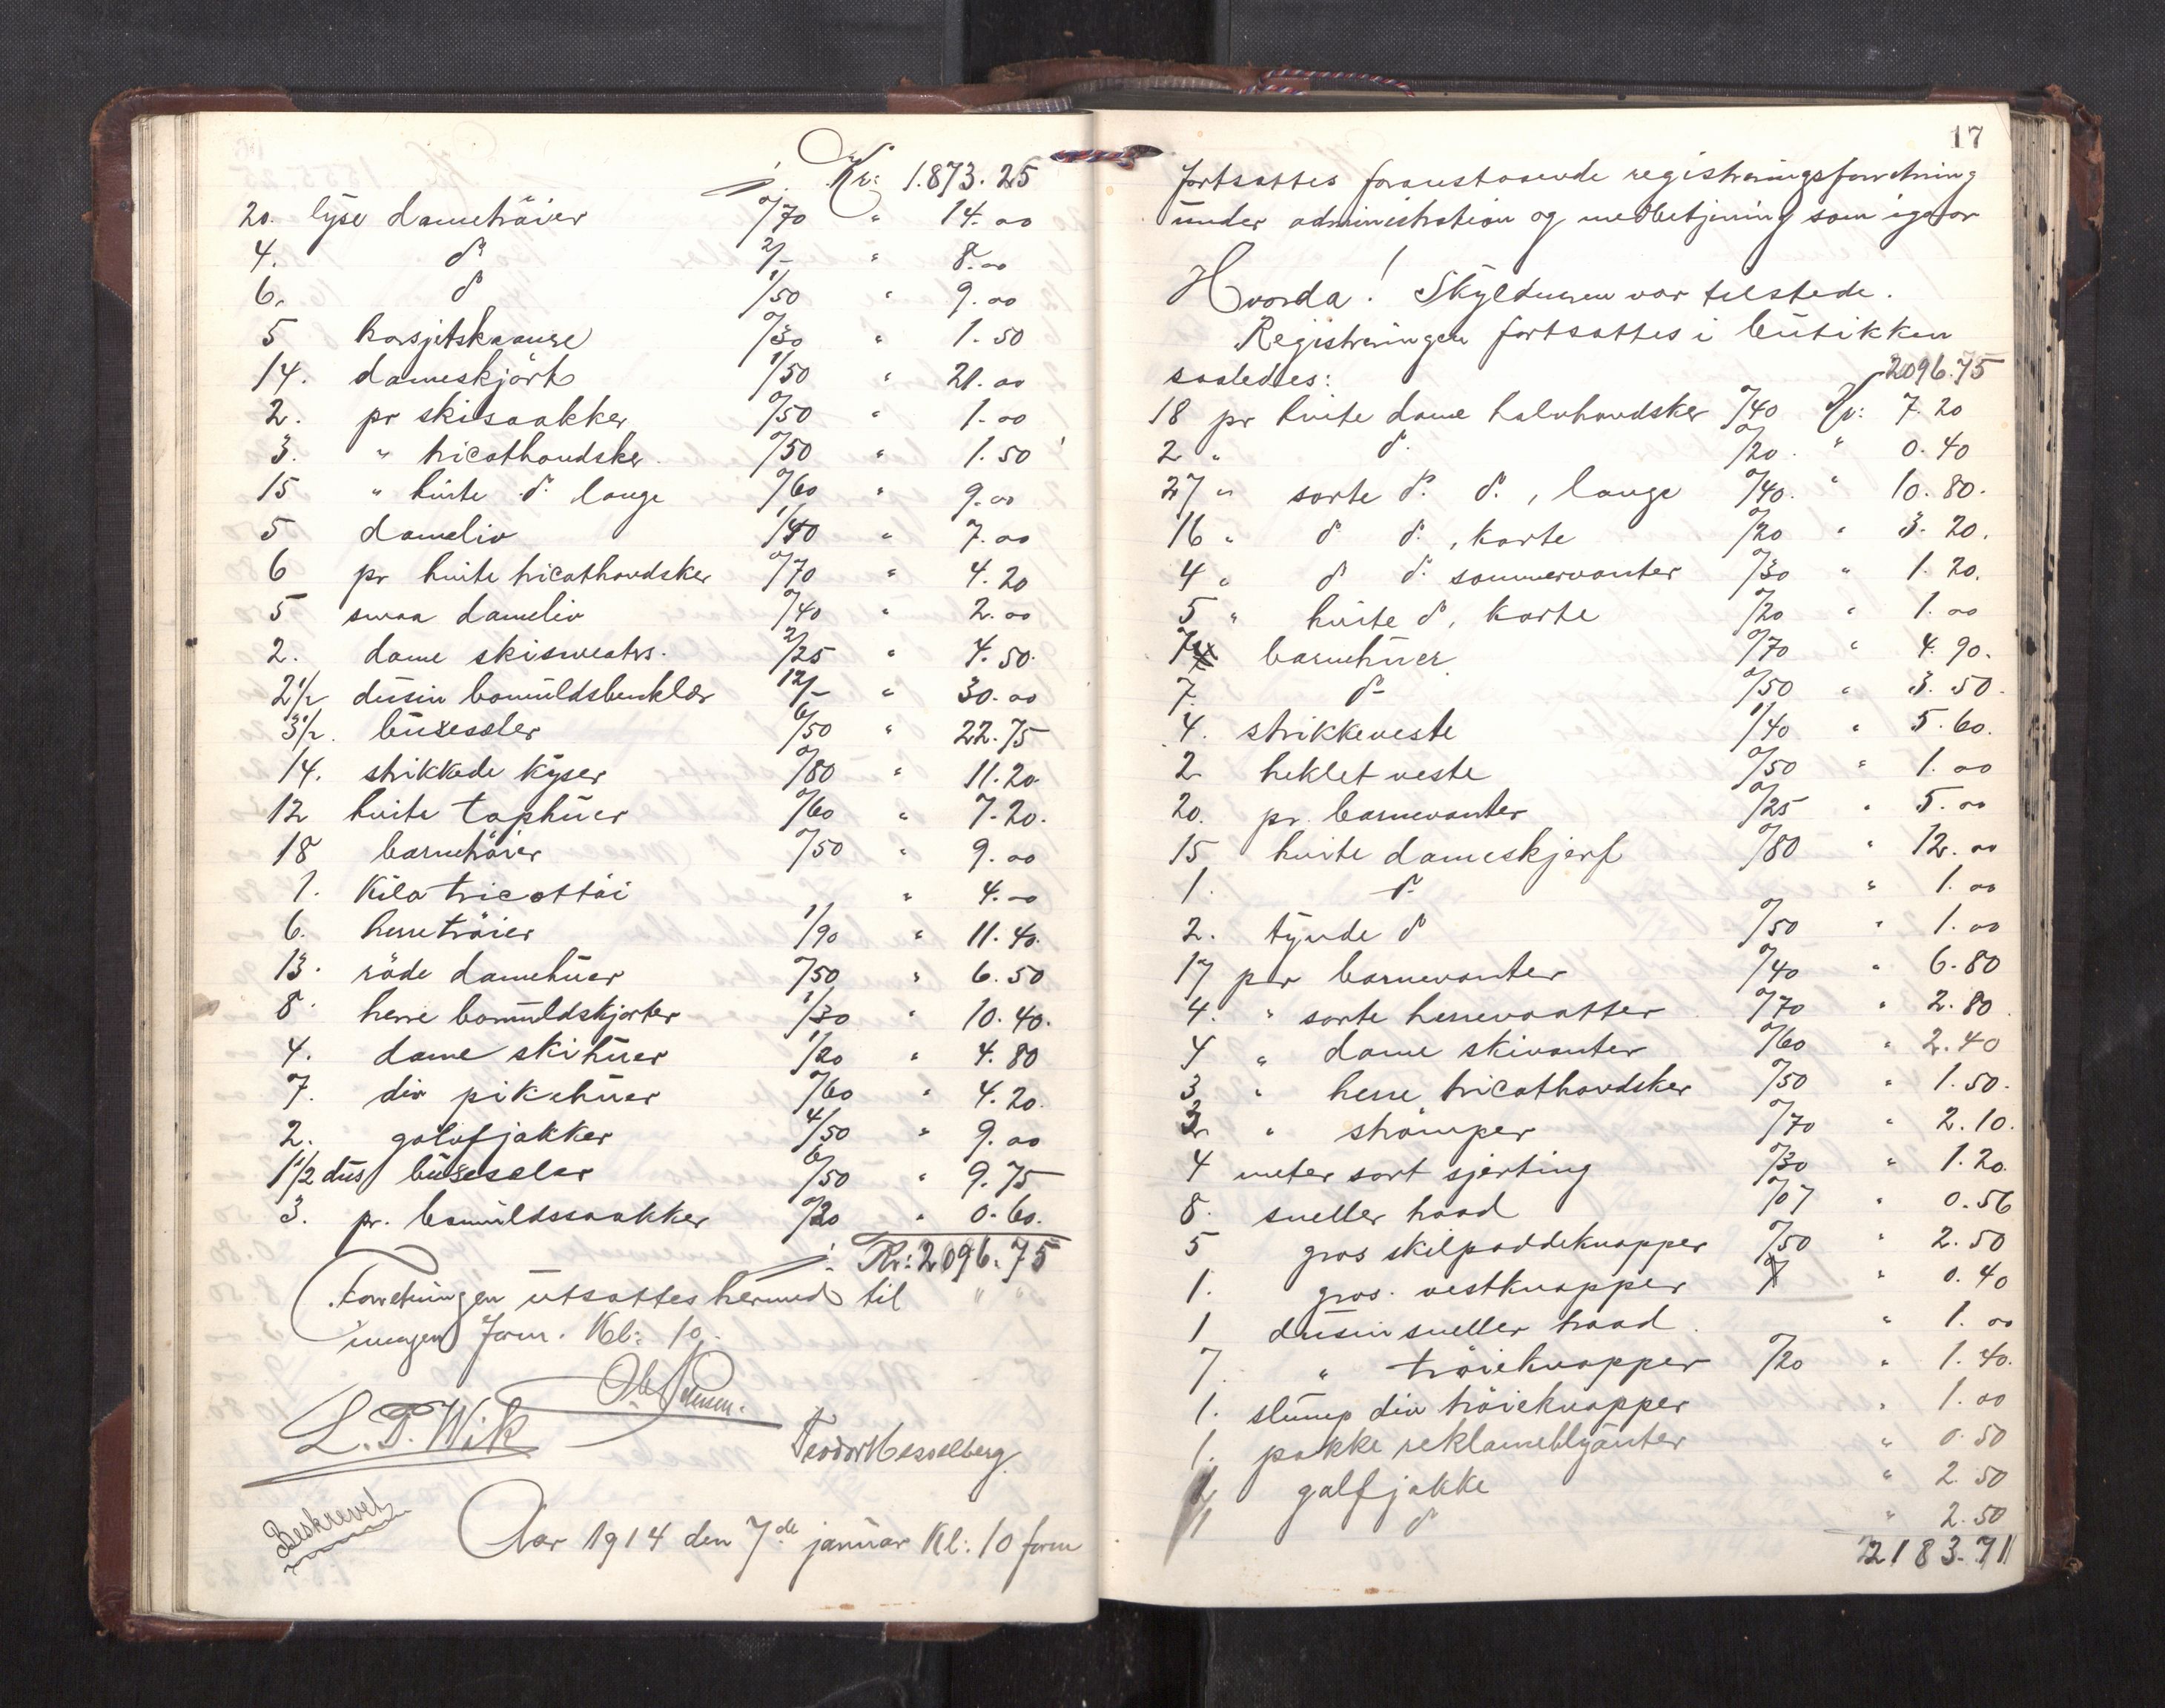 Kr: 1.873.25
20. lyse dametröier %70 " 14.00
4. do 2/- " 8.00
6. do 1/50 " 9.00
5 korsjetskaanere %30 " 1.50
14. dameskjört 1/50 " 21.00
2. pr skisaakker %50 " 1.00
3. " tricothandsker %50 " 1.50
15 " hvite do. lange %60 " 9.00
5 dameliv 1/40 " 7.00
6 pr hvite tricothandsker %70 " 4.20
5 smaa dameliv %40 " 2.00
2. dame skisweatrs. 2/25 " 4.50
2 1/2 dusin bomuldsbenklær 12/- " 30.00
3 1/2. buxesseler 6/50 " 22.75
14. strikkede kyser %80 " 11.20
12 hvite tophuer %60 " 7.20.
18 barnetröier %50 " 9.00
1. Kilo tricottöi " 4.00
6. herretröier 1/90 " 11.40.
13. röde damehuer %50 " 6.50
8. herre bomuldskjorter 1/30 " 10.40.
4. dame skihuer 1/20 " 4.80
7. div pikehuer %60 " 4.20.
2. golufjakker 4/50 " 9.00
1 1/2 dus buxeseler 6/50 " 9.75
3. pr. bomuldssaakker %20 " 0.60.
Kr: 2096.75
Forretningen utsattes hermed til
imorgen form. Kl: 10.
L. P. Wik
Teodor Hesselberg
Beskrevet
Aar 1914 den 7de januar Kl: 10 form
17
fortsattes foranstaaende registreringsforretning
under administration og medbetjening som igaar
Hvorda! Skyldneren var tilstede.
Registreringen fortsattes i butikken
saaledes: 2096.75
18 pr hvite dame halvhandsker %40 Kr: 7.20
2 " do. %20 " 0.40
27 " sorte do. do., lange %40. " 10.80.
16 " do do., korte %20 " 3.20.
4 " do do. sommervanter %30 " 1.20.
5 " hvite do, korte %20 " 1.00
7 barnehuer %70 " 4.90.
7. do %50 " 3.50.
4. strikkeveste 1/40 " 5.60.
2 heklet veste %50 " 1.00
20. pr. barnevanter %25 " 5.00
15 hvite dameskjerf %80 " 12.00
1. do " 1.00
2. tynde do %50 " 1.00
17 par barnevanter %40 " 6.80
4. " sorte herrevaatter %70 " 2.80.
4 " dame skivanter %60 " 2.40
3 " herre tricothandsker %50 " 1.50.
3 " strömper %70 " 2.10.
4 meter sort sjerting %30 " 1.20.
8. sneller traad %07 " 0.56
5 gros skilpaddeknapper %50 " 2.50
1. gros. vestknapper " 0.40
1 dusin sneller traad. " 1.00
7. " tröieknapper %20 " 1.40.
1. slump div tröieknapper " 1.00
1. pakke reklameblyanter " 0.50
1 golfjakke " 2.50
1 do " 2.50
2183.71